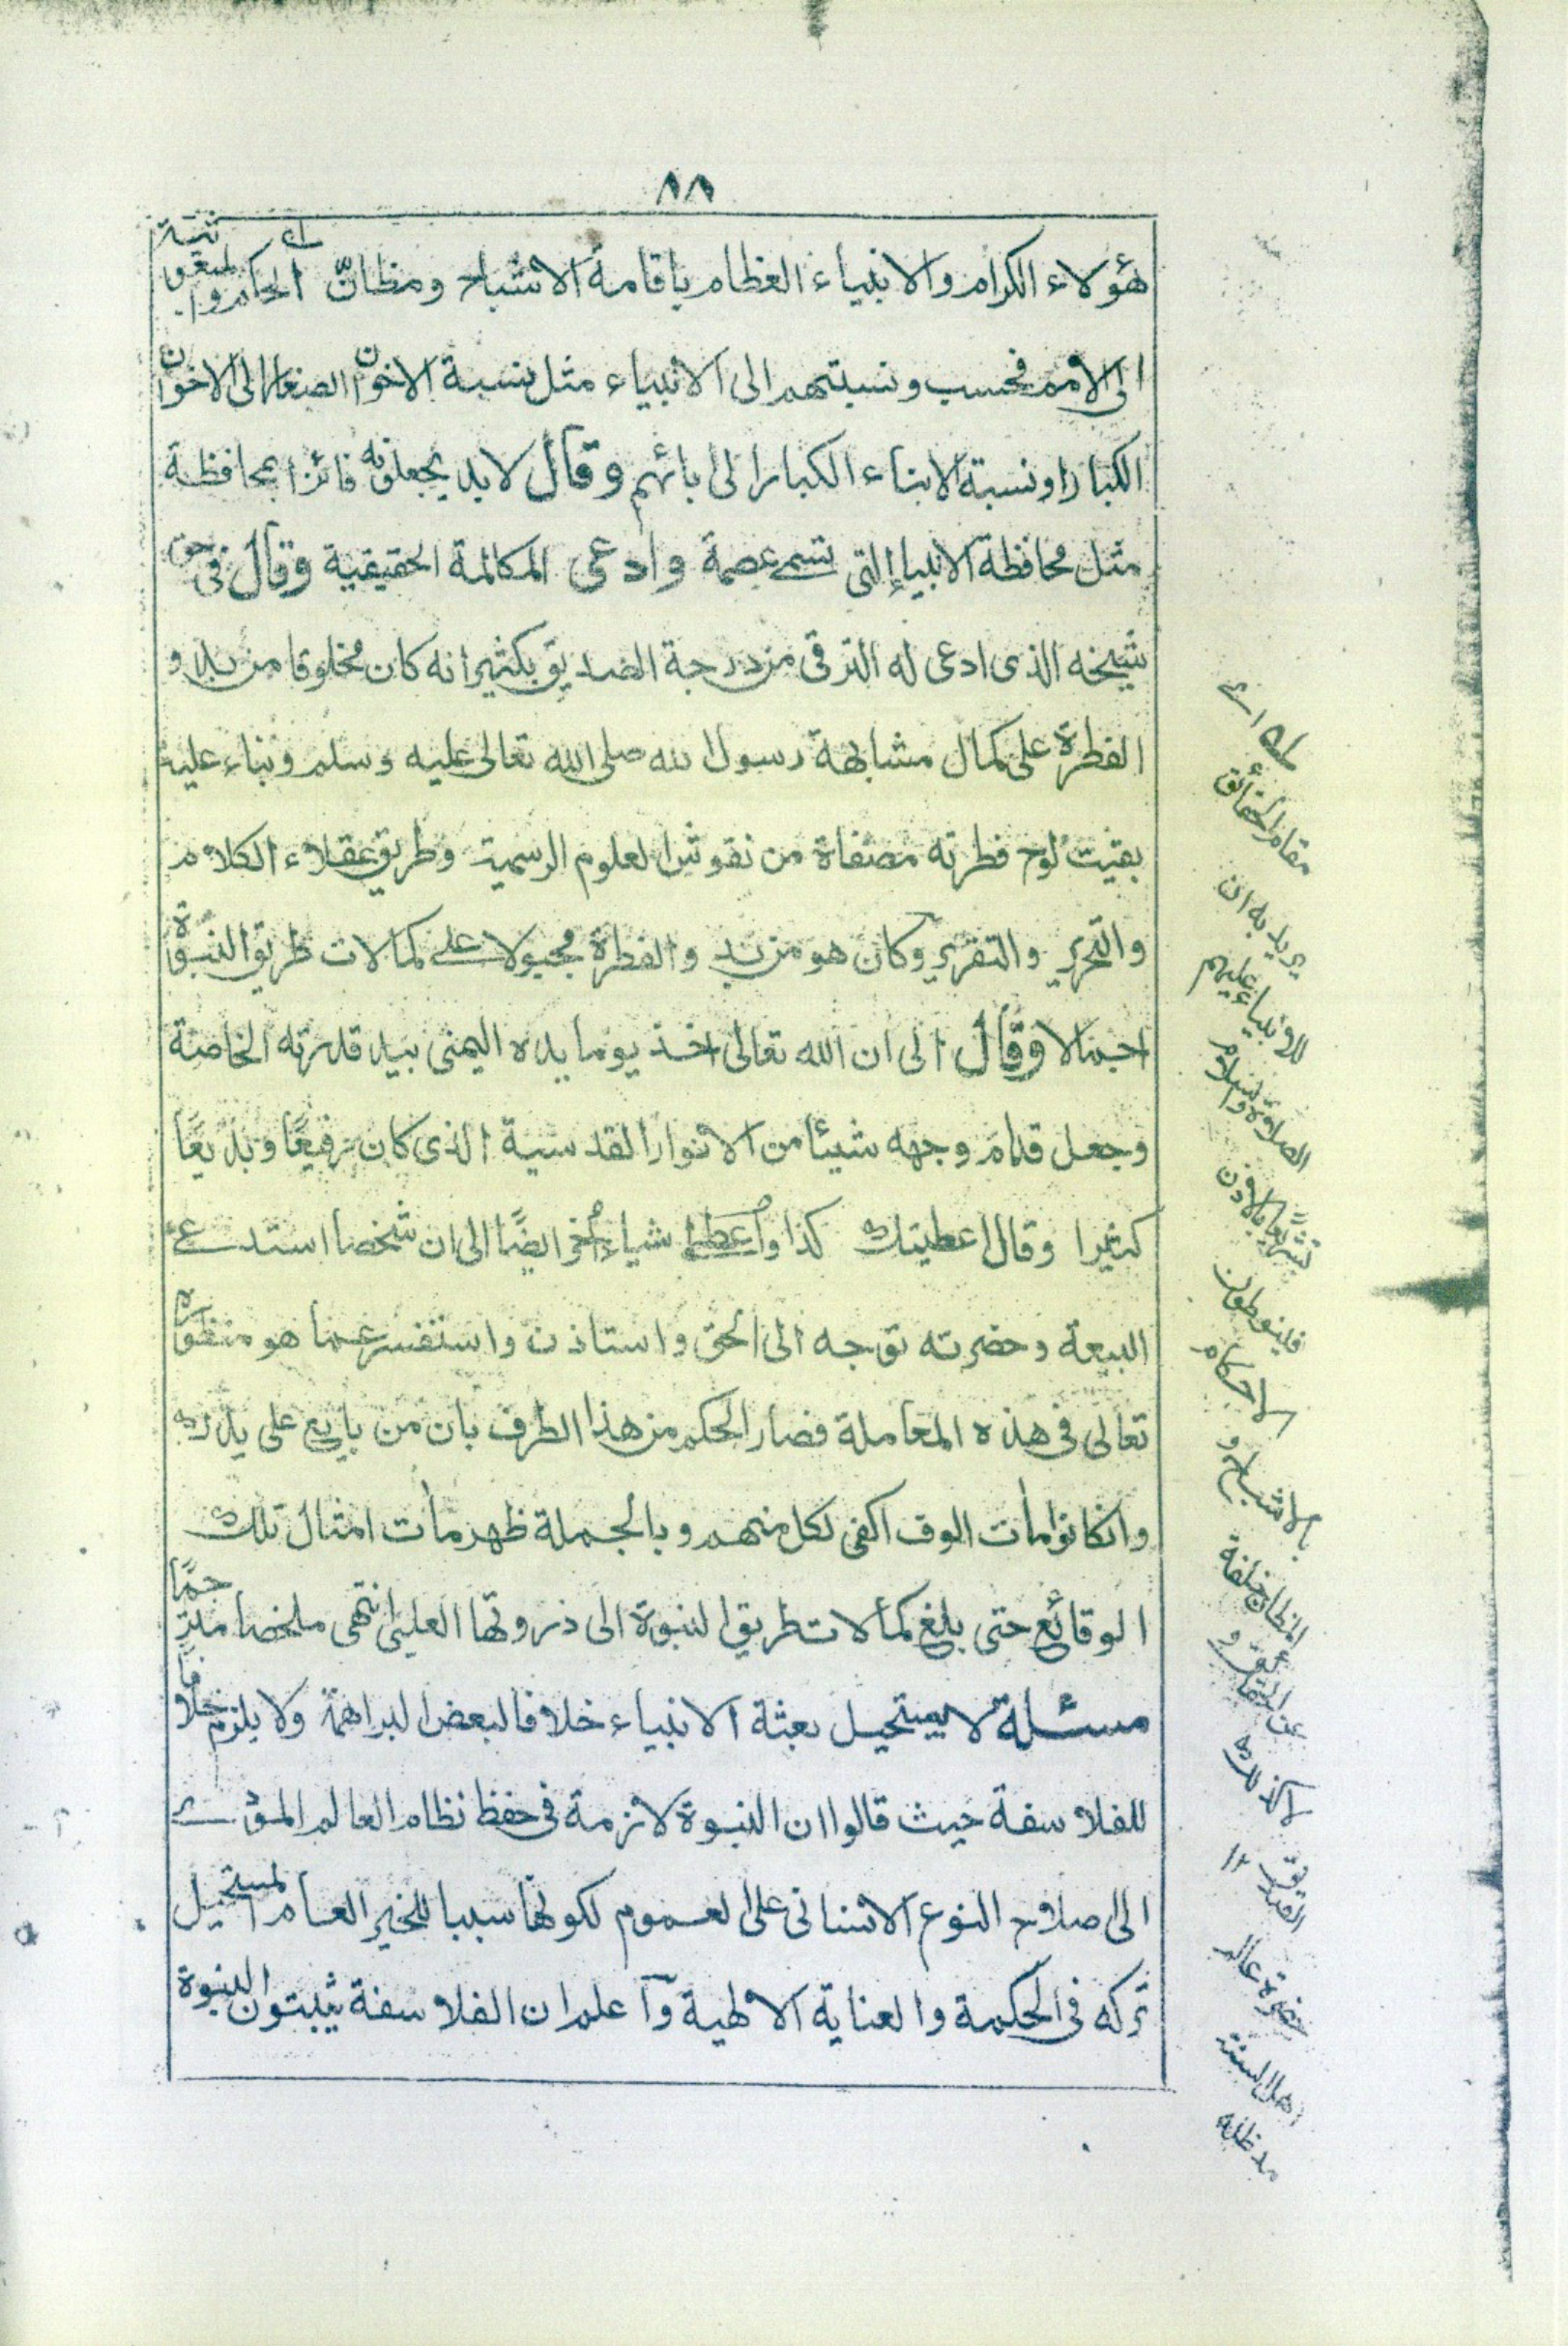 ٨٨
هؤلاء الكرام والانبياء العظام باقامة الاشباح ومظانّ الحكم والمبعوثية
الى الامم فحسب ونسبتهم الى الانبياء مثل نسبة الاخوان الصغار الى الاخوان
الكبار او نسبة الابناء الكبار الى ابائهم وقال لابد يجعلونه فائزا بمحافظة
مثل محافظة الانبياء التى تسمى عصمة وادعى المكالمة الحقيقية وقال فى حق
شيخه الذى ادعى له الترقى من درجة الصديق بكثير انه كان مخلوقا من بدو
الفطرة على كمال مشابهة رسول الله صلى الله تعالى عليه وسلم وبناء عليه
بقيت لوح فطرته مصفاة من نقوش العلوم الرسمية وطريق عقلاء الكلام
والتحرير والتقرير وكان هو من بدو الفطرة مجبولا على كمالات طريق النبوة
اجمالا وقال الى ان الله تعالى اخذ يوما يده اليمنى بيد قدرته الخاصة
وجعل قدام وجهه شيئا من الانوار القدسية الذى كان رفيعًا وبديعًا
كثيرا وقال اعطيتك كذا واعطى شياء أخر ايضًا الى ان شخصا استدعى
البيعة وحضرته توجه الى الحق واستاذن واستفسر عما هو منظوره
تعالى فى هذه المعاملة فصار الحكم من هذا الطرف بان من بايع على يدك
وانكانوا مأت الوف اكفى لكل منهم وبالجملة ظهر مأت امثال تلك
الوقائع حتى بلغ كمالات طريق النبوة الى ذروتها العليا انتهى ملخصا مترجمًا
مسئلة لا يستحيل بعثة الانبياء خلافا لبعض البراهمة ولا يلزم خلافًا
للفلاسفة حيث قالوا ان النبوة لازمة فى حفظ نظام العالم المؤدى
الى صلاح النوع الانسانى على العموم لكونها سببا للخير العام المستحيل
تركه فى الحكمة والعناية الالهية وآعلم ان الفلاسفة يثبتون النبوة
مقام الحقائق
يريد به ان
للانبياء عليهم
الصلاة والسلام
الاحكام
بالاشباح و
حضرة عالم
اهل السنة
مدظله